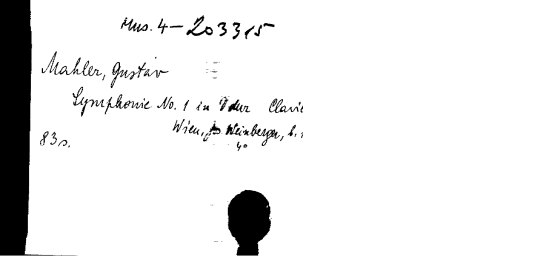 Mus. 4-203315
Mahler, Gustav
Symphonie No. 1 in D dur Clavi
Wien, Weinberger,
4°
83 s.